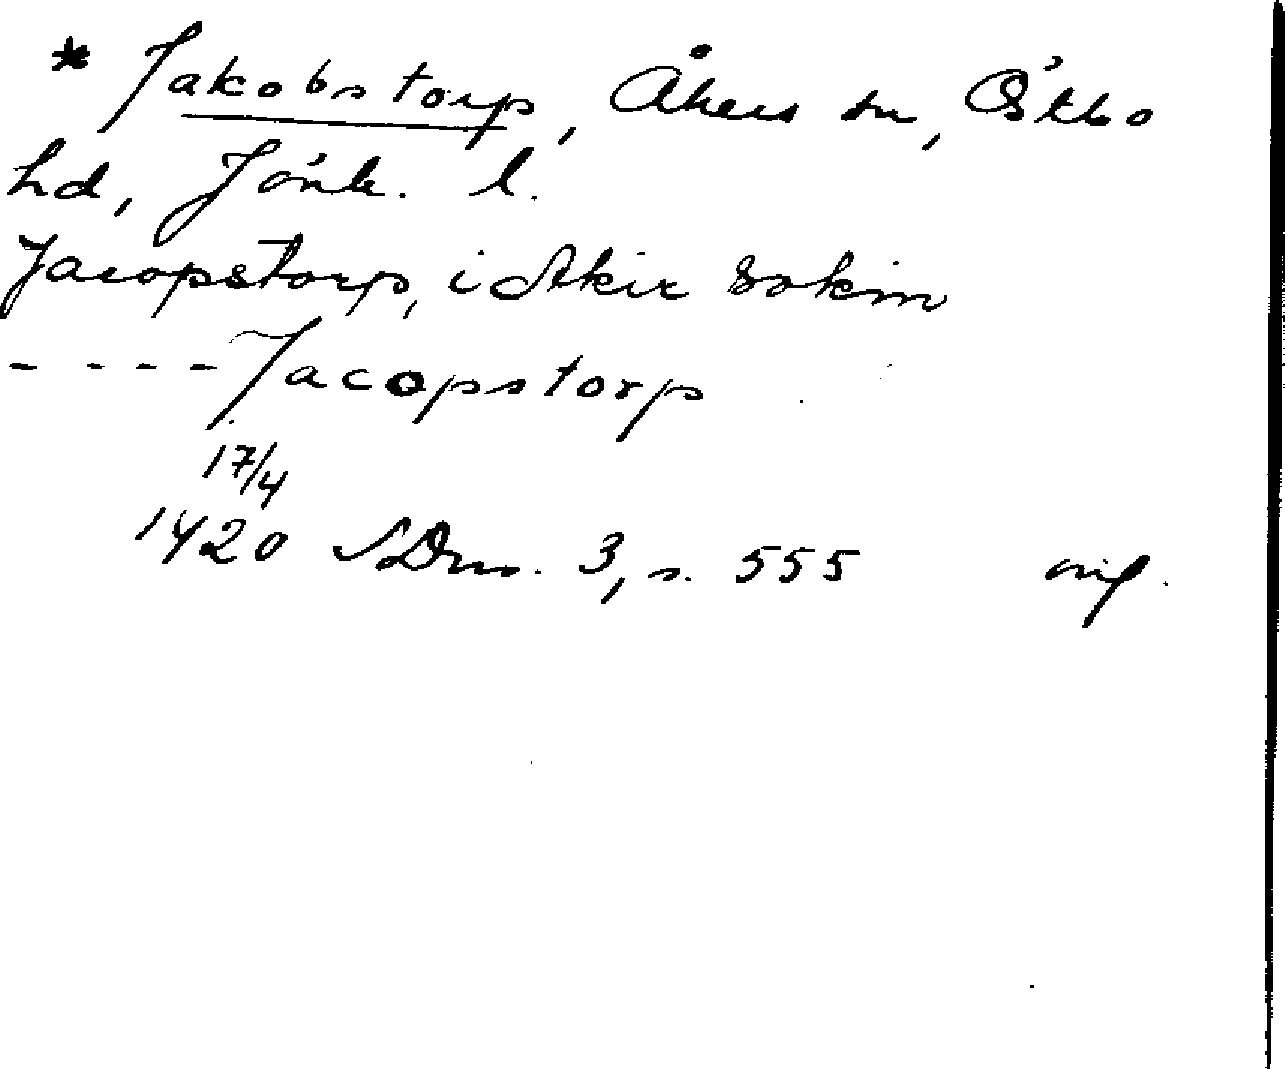 * Jakobstorp, Åkers sn, Östbo
hd, Jönk. l.
Jacopstorp, i Akir sokin
- - - - Jacopstorp
17/4
1420 SDns. 3, s. 555 orig.